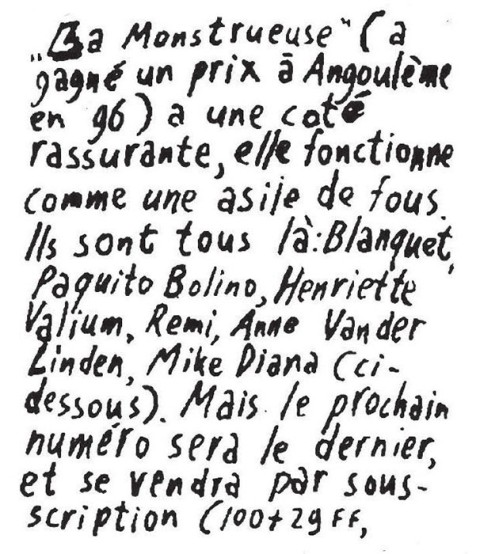 „La Monstrueuse" (a
gagné un prix à Angoulème
en 96) a une coté
rassurante, elle fonctionne
comme une asile de fous.
Ils sont tous là: Blanquet,
Paquito Bolino, Henriette
Valium, Remi, Anne Van der
Linden, Mike Diana (ci-
dessous). Mais le prochain
numéro sera le dernier,
et se vendra par sous-
scription (100+29FF,